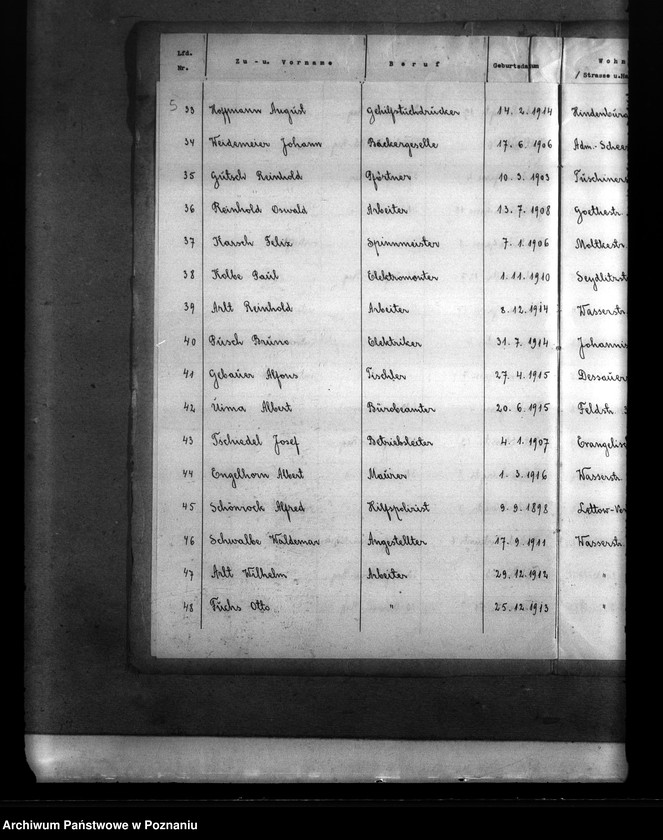 Lfd. Nr. Zu- u. Vorname Beruf Geburtsdatum Wohn
/ Strasse u.Ha
5
33 Hoffmann August 14. 2. 1914 Hindenburg
34 Weidemeier Johann Bäckergeselle 17. 6. 1906 Adm.-Scheer
35 Gütsch Reinhold Pförtner 10. 3. 1903
36 Reinhold Oswald Arbeiter 13. 7. 1908 Goethestr.
37 Karsch Felix Spinnmeister 7. 1. 1906 Moltkestr.
38 Kolbe Paul Elektromonter 1. 11. 1910 Seydlitzstr
39 Arlt Reinhold Arbeiter 8. 12. 1914 Wasserstr.
40 Püsch Bruno Elektriker 31. 7. 1914 Johannis
41 Gebauer Alfons Tischler 27. 4. 1915 Dessauer
42 Albert Bürobeamter 20. 6. 1915 Feldstr.
43 Tschiedel Josef Betriebsleiter 4. 1. 1907 Evangelisc
44 Engelhorn Albert Maurer 1. 3. 1916 Wasserstr.
45 Schönrock Alfred Hilfspolizist 9. 9. 1898 Lettow-Vor
46 Schwalbe Waldemar Angestellter 17. 9. 1911 Wasserstr.
47 Arlt Wilhelm Arbeiter 29. 12. 1912 "
48 Fuchs Otto " 25. 12. 1913 "
Archiwum Państwowe w Poznaniu